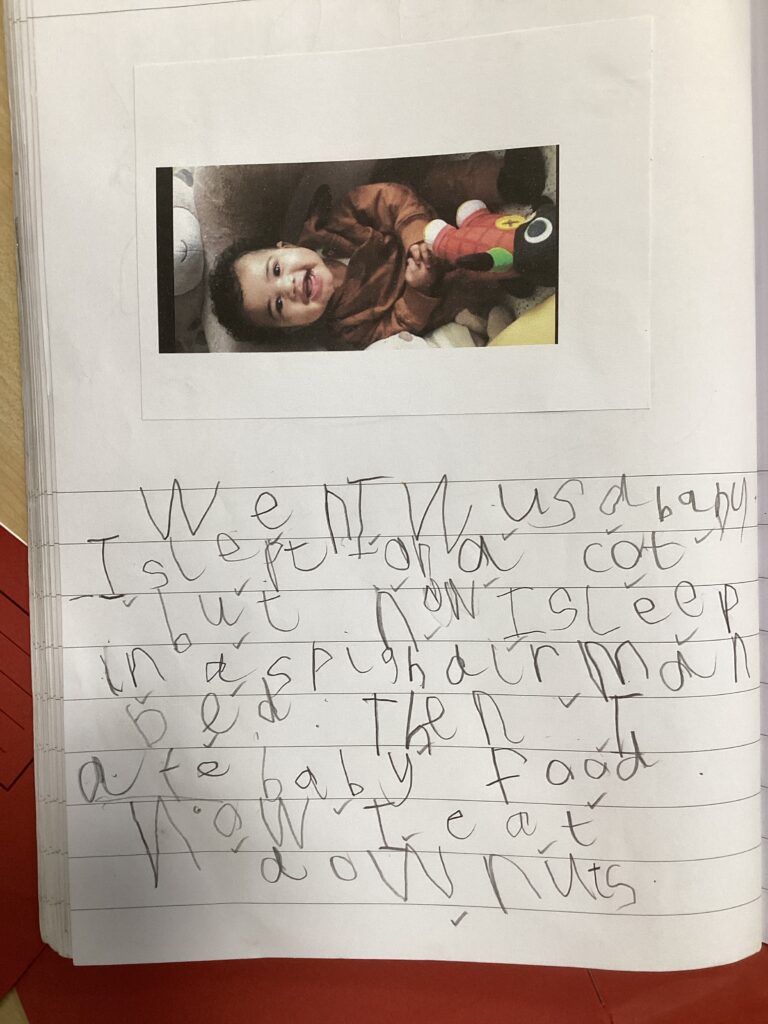 Wen I W us a baby.
I slept fon a cat
but now I sleep
in a spighdir man
bed. Then I
ate baby food.
Now I eat
downuts.